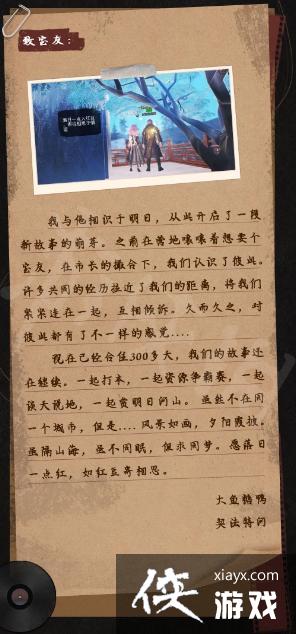 致宝友：
我与他相识于明日，从此开启了一段
新故事的萌芽。之前在营地嚷嚷着想要个
宝友，在市长的撮合下，我们认识了彼此。
许多共同的经历拉近了我们的距离，将我们
紧紧连在一起，互相倾诉。久而久之，对
彼此都有了不一样的感觉....
现在已经合住300多天，我们的故事还
在继续。一起打本，一起资源争霸赛，一起
谈天说地，一起赏明日河山。虽然不在同
一个城市，但是....风景如画，夕阳霞披。
虽隔山海，虽不同眠，但求同梦。愿落日
一点红，如红豆寄相思。
大鱼糖鸭
契法特问
侠
xiayx.com
游戏